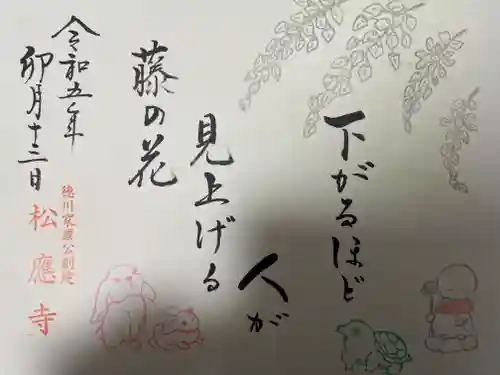 下がるほど
人が
見上げる
藤の花
令和五年
卯月十三日
徳川家康公創建
松應寺